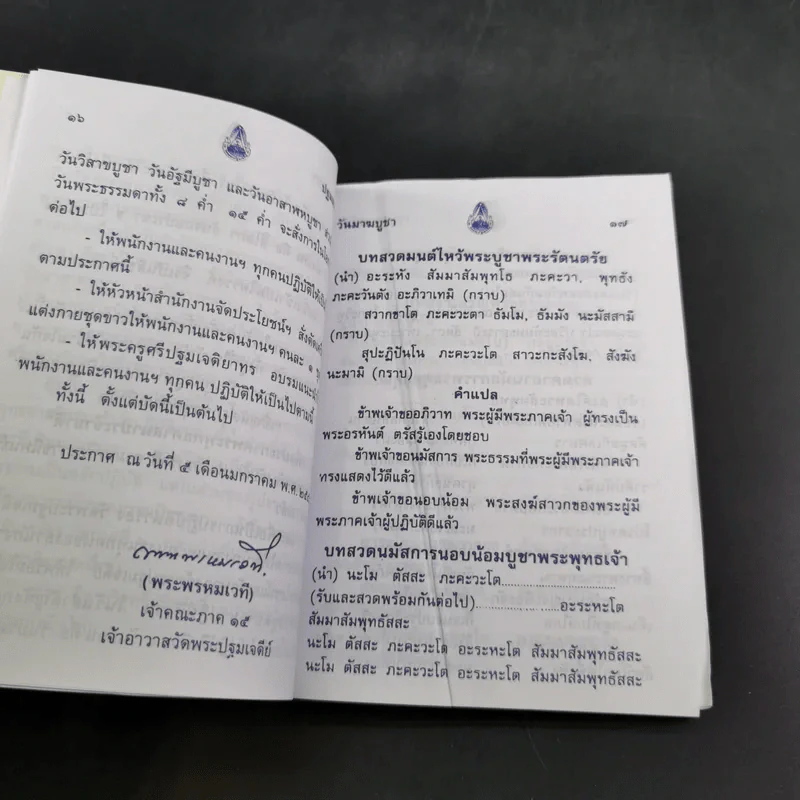 ๑๖
วันวิสาขบูชา วันอัฐมีบูชา และวันอาสาฬหบูชา
วันพระธรรมดาทั้ง ๘ ค่ำ ๑๕ ค่ำ จะสั่งการใน
ต่อไป
- ให้พนักงานและคนงานฯ ทุกคนปฏิบัติให้
ตามประกาศนี้
- ให้หัวหน้าสำนักงานจัดประโยชน์ฯ สั่งตัด
แต่งกายชุดขาวให้พนักงานและคนงานฯ คนละ ๑
- ให้พระครูศรีปฐมเจติยาทร อบรมแนะนำ
พนักงานและคนงานฯ ทุกคน ปฏิบัติให้เป็นไปตามนี้
ทั้งนี้ ตั้งแต่บัดนี้เป็นต้นไป
ประกาศ ณ วันที่ ๕ เดือนมกราคม พ.ศ.๒๕
(พระพรหมเวที)
เจ้าคณะภาค ๑๕
เจ้าอาวาสวัดพระปฐมเจดีย์
วันมาฆบูชา ๑๗
บทสวดมนต์ไหว้พระบูชาพระรัตนตรัย
(นำ) อะระหัง สัมมาสัมพุทโธ ภะคะวา, พุทธัง
ภะคะวันตัง อะภิวาเทมิ (กราบ)
สวากขาโต ภะคะวะตา ธัมโม, ธัมมัง นะมัสสามิ
(กราบ)
สุปะฏิปันโน ภะคะวะโต สาวะกะสังโฆ, สังฆัง
นะมามิ (กราบ)
คำแปล
ข้าพเจ้าขออภิวาท พระผู้มีพระภาคเจ้า ผู้ทรงเป็น
พระอรหันต์ ตรัสรู้เองโดยชอบ
ข้าพเจ้าขอนมัสการ พระธรรมที่พระผู้มีพระภาคเจ้า
ทรงแสดงไว้ดีแล้ว
ข้าพเจ้าขอนอบน้อม พระสงฆ์สาวกของพระผู้มี
พระภาคเจ้าผู้ปฏิบัติดีแล้ว
บทสวดนมัสการนอบน้อมบูชาพระพุทธเจ้า
(นำ) นะโม ตัสสะ ภะคะวะโต..............................
(รับและสวดพร้อมกันต่อไป)................ .....อะระหะโต
สัมมาสัมพุทธัสสะ
นะโม ตัสสะ ภะคะวะโต อะระหะโต สัมมาสัมพุทธัสสะ
นะโม ตัสสะ ภะคะวะโต อะระหะโต สัมมาสัมพุทธัสสะ